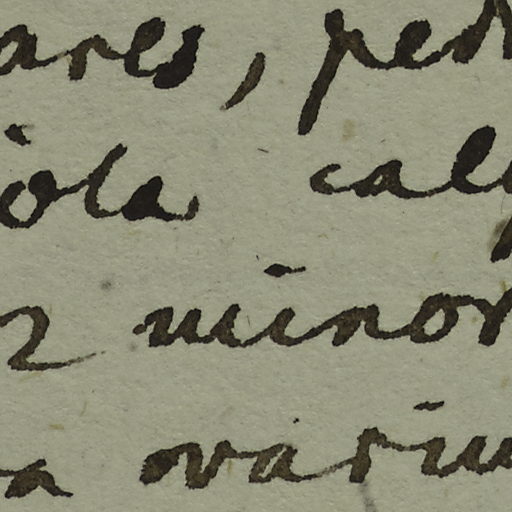 ares, ped
iola caly
2 minor
a variu